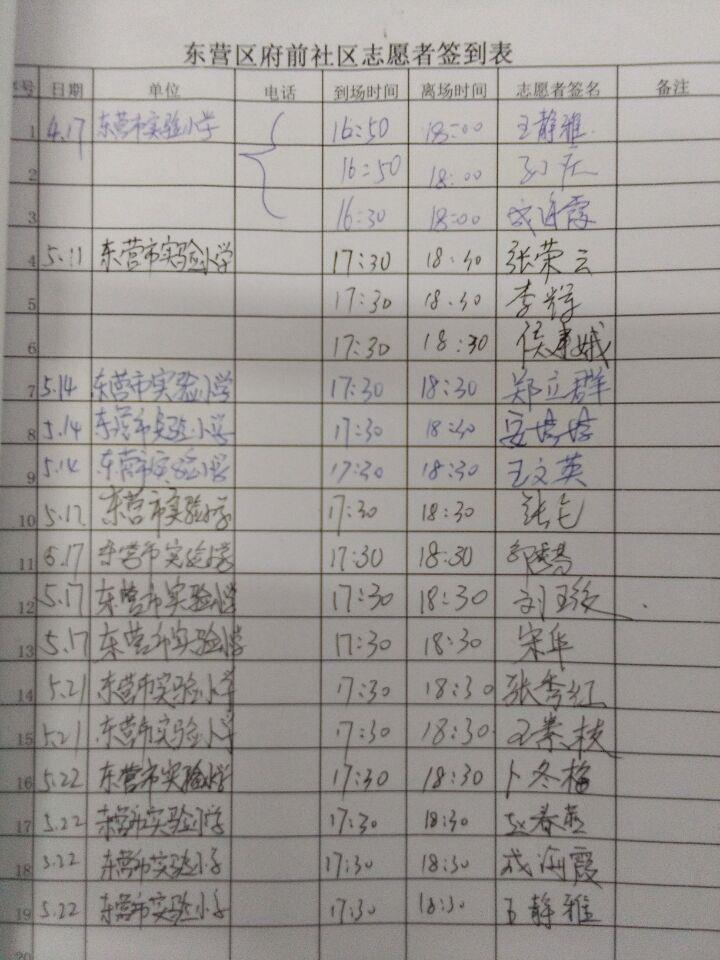 东营区府前社区志愿者签到表
序号 日期 单位 电话 到场时间 离场时间 志愿者签名 备注
1 4.17 东营市实验小学 16:50 18:00 王静雅
2 16:50 18:00
3 16:30 18:00 成海霞
4 5.11 东营市实验小学 17:30 18:30 张荣云
5 17:30 18:30 李辉
6 17:30 18:30 侯建娥
7 5.14 东营市实验小学 17:30 18:30 郑立群
8 5.14 东营市实验小学 17:30 18:30 安婷婷
9 5.14 东营市实验小学 17:30 18:30 王文英
10 5.17 东营市实验小学 17:30 18:30 张
11 5.17 东营市实验小学 17:30 18:30
12 5.17 东营市实验小学 17:30 18:30 刘
13 5.17 东营市实验小学 17:30 18:30 宋华
14 5.21 东营市实验小学 17:30 18:30 张秀红
15 5.21 东营市实验小学 17:30 18:30 王素枝
16 5.22 东营市实验小学 17:30 18:30 卜冬梅
17 5.22 东营市实验小学 17:30 18:30 赵春燕
18 5.22 东营市实验小学 17:30 18:30 成海霞
19 5.22 东营市实验小学 17:30 18:30 王静雅
20